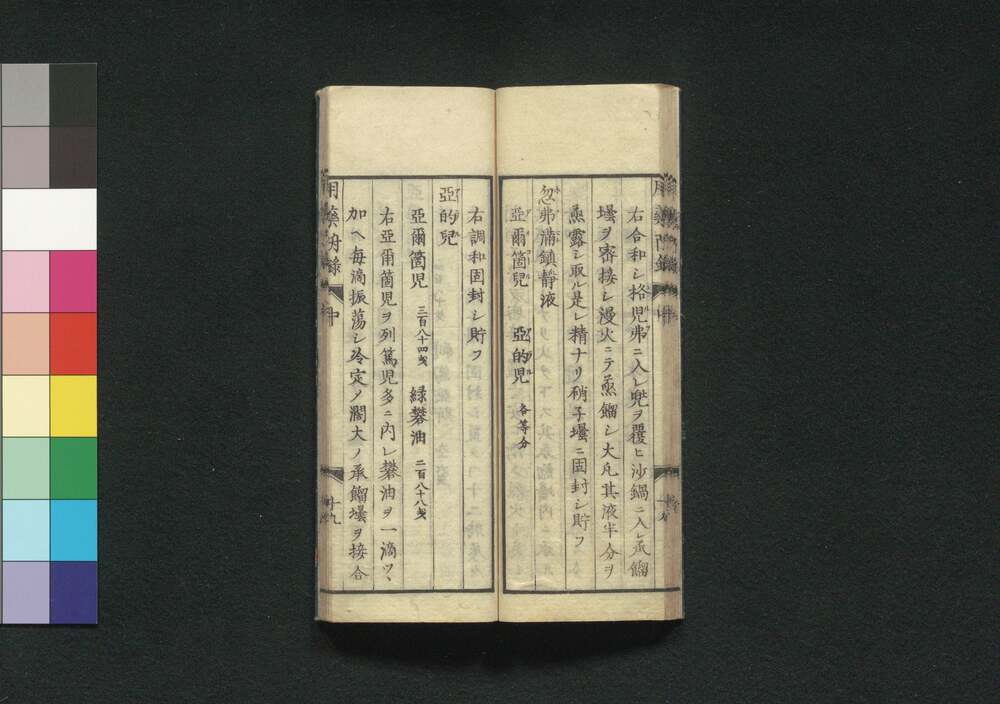 右合和シ格児弗ニ入レ兜ヲ覆ヒ沙鍋ニ入レ承餾
壜ヲ密接シ漫火ニテ蒸餾シ大凡其液半分ヲ
蒸露シ取ル是レ精ナリ硝子壜ニ固封シ貯フ
忽弗満鎮静液
亞爾箇児 亞的児 各等分
右調和固封シ貯フ
亞的児
亞爾箇児 三百八十四戔 緑礬油 二百八十八戔
右亞爾箇児ヲ列篤児多ニ内レ礬油ヲ一滴ツヽ
加ヘ毎滴振蕩シ冷定ノ濶大ノ承餾壜ヲ接合
用藥附錄 中
十九